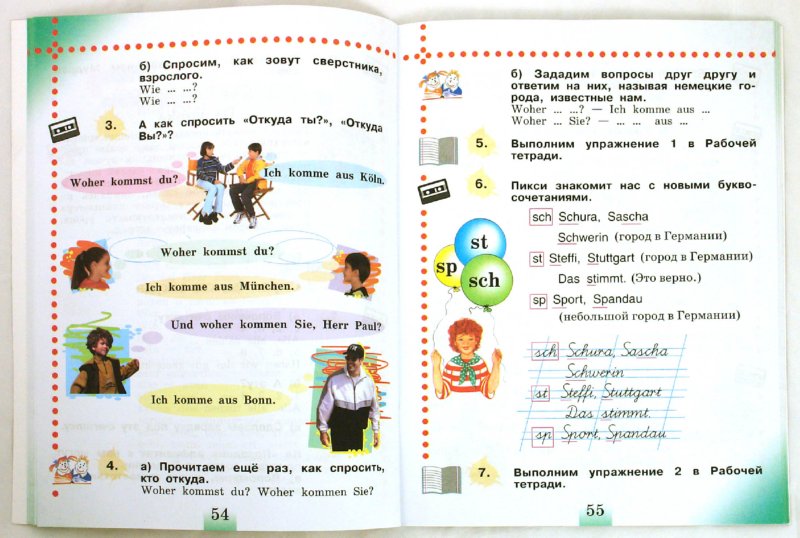 б) Спросим, как зовут сверстника,
взрослого.
Wie ... ...?
Wie ... ...?
3. А как спросить «Откуда ты?», «Откуда
Вы?»?
Woher kommst du?
Ich komme aus Köln.
Woher kommst du?
Ich komme aus München.
Und woher kommen Sie, Herr Paul?
Ich komme aus Bonn.
4. а) Прочитаем ещё раз, как спросить,
кто откуда.
Woher kommst du? Woher kommen Sie?
54
б) Зададим вопросы друг другу и
ответим на них, называя немецкие го-
рода, известные нам.
Woher ... ...? — Ich komme aus ...
Woher ... Sie? — ... ... aus ...
5. Выполним упражнение 1 в Рабочей
тетради.
6. Пикси знакомит нас с новыми букво-
сочетаниями.
st
sp
sch
sch Schura, Sascha
Schwerin (город в Германии)
st Steffi, Stuttgart (город в Германии)
Das stimmt. (Это верно.)
sp Sport, Spandau
(небольшой город в Германии)
sch Schura, Sascha
Schwerin
st Steffi, Stuttgart
Das stimmt.
sp Sport, Spandau
7. Выполним упражнение 2 в Рабочей
тетради.
55